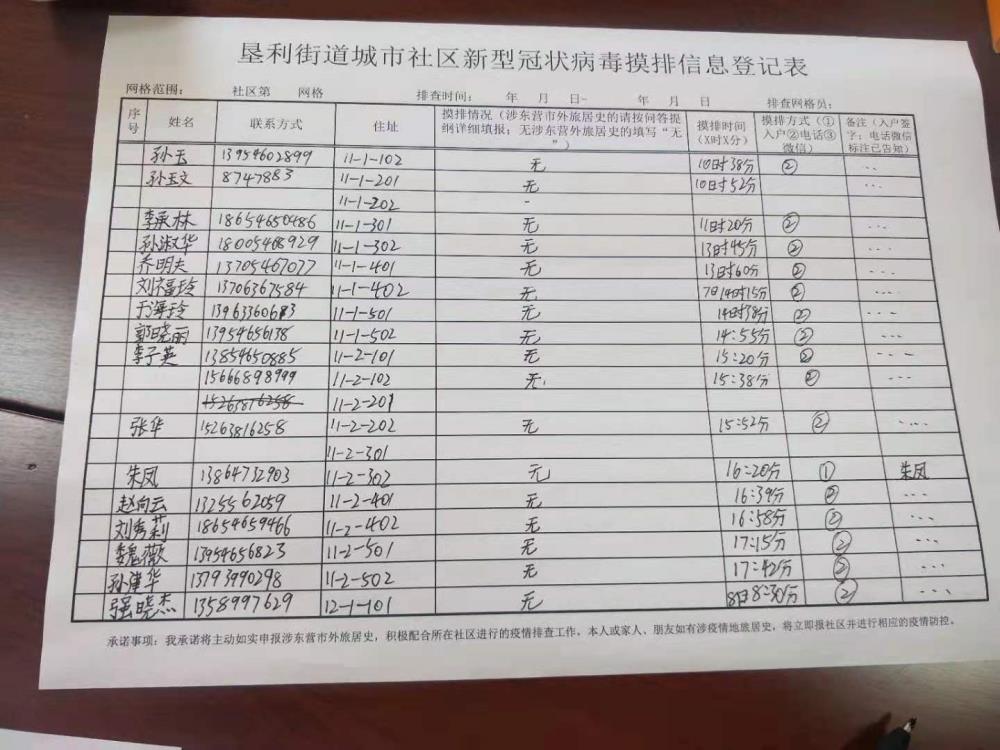 垦利街道城市社区新型冠状病毒摸排信息登记表
网格范围: 社区第 网格 排查时间: 年 月 日- 年 月 日 排查网格员:
序号 姓名 联系方式 住址 摸排情况(涉东营市外旅居史的请按问答提纲详细填报;无涉东营外旅居史的填写“无”) 摸排时间(X时X分) 摸排方式(①入户②电话③微信) 备注(入户签字;电话微信标注已告知)
孙玉 13954602899 11-1-102 无 10时38分 ② ...
孙玉文 8747883 11-1-201 无 10时52分 ...
11-1-202 -
李承林 18654650486 11-1-301 无 11时20分 ② ...
孙淑华 18005468929 11-1-302 无 13时45分 ② ...
乔明夫 13705467077 11-1-401 无 13时60分 ② ...
刘福玲 13706367584 11-1-402 无 7日14时15分 ② ...
于海玲 13963360613 11-1-501 无 14时38分 ② ...
郭晓丽 13954656138 11-1-502 无 14:55分 ② ...
李子英 13854650885 11-2-101 无 15:20分 ② ...
15666898999 11-2-102 无. 15:38分 ② ...
15263816258 11-2-201
张华 15263816258 11-2-202 无 15:52分 ② ...
11-2-301
朱凤 13864732903 11-2-302 无 16:20分 ① 朱凤
赵向云 13255562059 11-2-401 无 16:39分 ② ...
刘秀莉 18654659466 11-2-402 无 16:58分 ② ...
魏薇 13954656823 11-2-501 无 17:15分 ② ...
孙津华 13793990298 11-2-502 无 17:42分 ② ...
强晓杰 1358997629 12-1-101 无 8日8:30分 ② ...
承诺事项:我承诺将主动如实申报涉东营市外旅居史,积极配合所在社区进行的疫情排查工作。本人或家人、朋友如有涉疫情地旅居史,将立即报社区并进行相应的疫情防控。